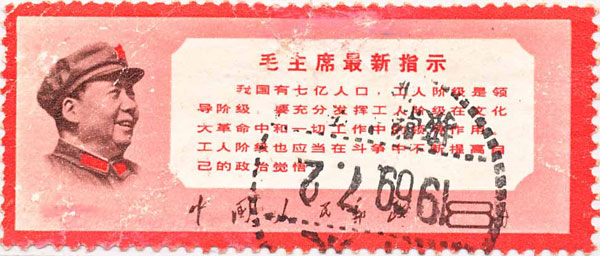 毛主席最新指示
我国有七亿人口，工人阶级是领
导阶级。要充分发挥工人阶级在文化
大革命中和一切工作中的领导作用。
工人阶级也应当在斗争中不断提高自
己的政治觉悟。
中国人民邮政
8分
1969.7.2